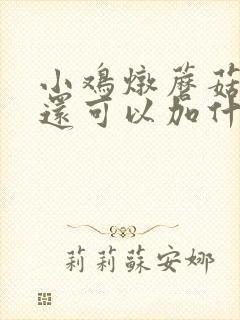 小鸡燉蘑菇
還可以加什
莉莉蘇安娜